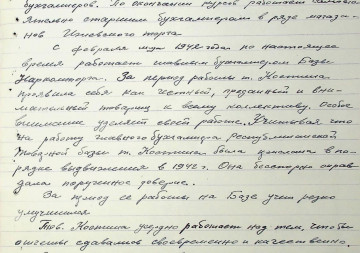 бухгалтеров. По окончании курсов работает самосто
ятельно старшим бухгалтером в ряде магази-
нов торга
С февраля м-ца 1942 года по настоящее
время работает главным бухгалтером Базы
Наркомторга. За период работы т. Костина
проявила себя как честный, преданный и вни-
мательный товарищ к всему коллективу. Особое
внимание уделяет своей работе. Учитывая что
на работу главного бухгалтера Республиканской
товарной базы т. Костина была принята в по-
рядке выдвижения в 1942 г. Она бесспорно оправ-
дала порученное доверие.
За период её работы на Базе учет резко
улучшился
Тов. Костина усердно работает над тем, чтобы
отчеты сдавались своевременно и качественно.